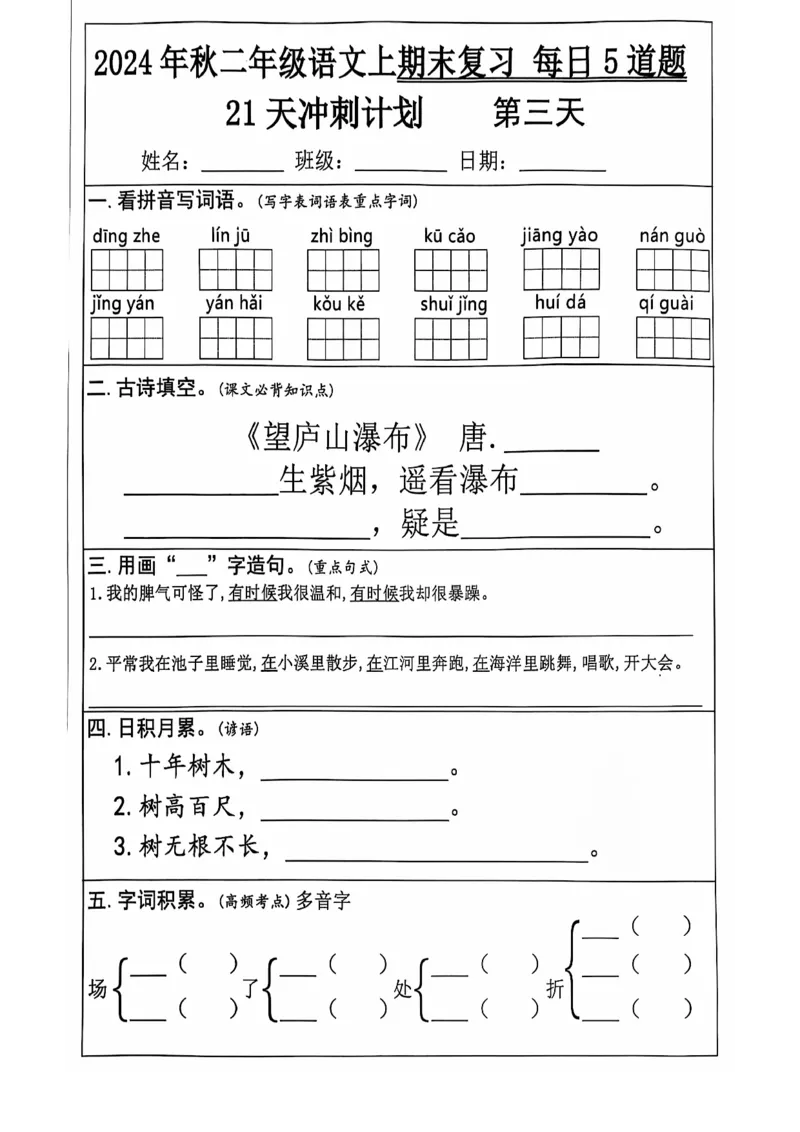 2024年秋二年级语文上期末复习 每日5道题
21天冲刺计划 第三天
姓名：______ 班级：______ 日期：______
一.看拼音写词语。(写字表词语表重点字词)
dīng zhe lín jū zhì bìng kū cǎo jiāng yào nán guò
jǐng yán yán hǎi kǒu kě shuǐ jǐng huí dá qí guài
二.古诗填空。(课文必背知识点)
《望庐山瀑布》 唐.______
______生紫烟，遥看瀑布______。
______，疑是______。
三.用画“___”字造句。(重点句式)
1.我的脾气可怪了,有时候我很温和,有时候我却很暴躁。
2.平常我在池子里睡觉,在小溪里散步,在江河里奔跑,在海洋里跳舞,唱歌,开大会。
四.日积月累。(谚语)
1.十年树木，______。
2.树高百尺，______。
3.树无根不长，______。
五.字词积累。(高频考点)多音字
___（ ）
___（ ） ___（ ） ___（ ） ___（ ）
场 了 处 折
___（ ） ___（ ） ___（ ） ___（ ）